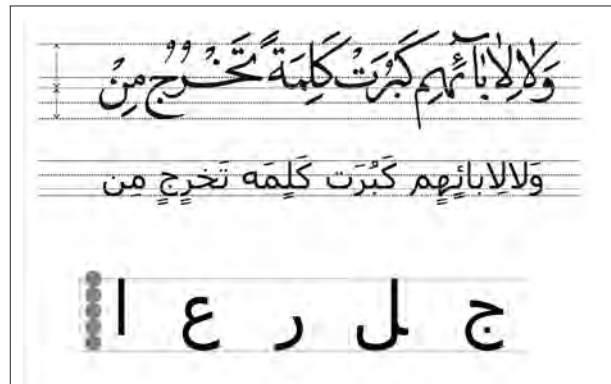 وَلٰالِاٰبٰآئِهِم كَبُرَتْ كَلِمَةً تَخْرُجُ مِنْ
وَلالِابائٍهٍم كَبُرَت كَلٍمَه تَخرٍجٍ مِن
ج ل ر ع ا